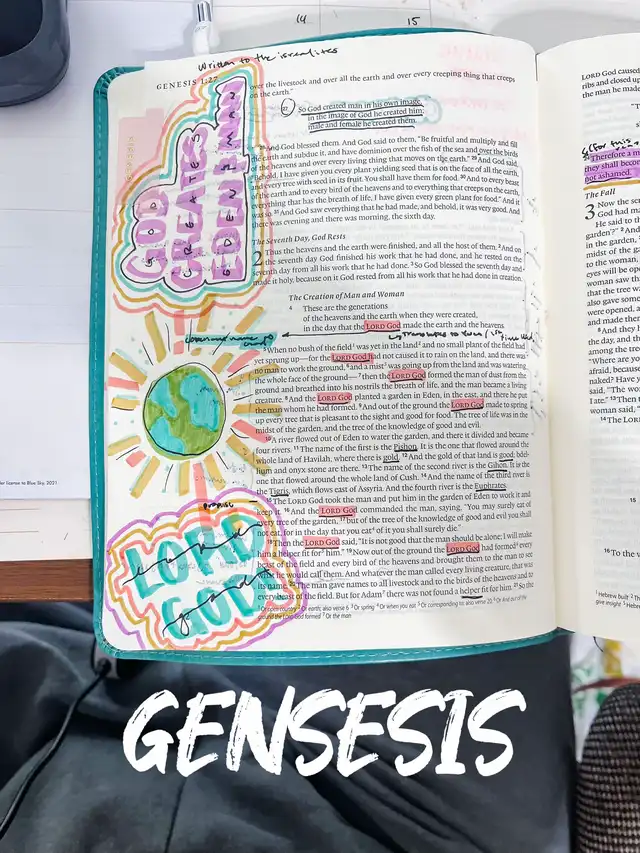 14
15
Written to the isrealites
GENESIS 1:27
over the livestock and over all the earth and over every creeping thing that creeps
on the earth."
27 So God created man in his own image,
in the image of God he created him;
male and female he created them.
28 And God blessed them. And God said to them, "Be fruitful and multiply and fill
the earth and subdue it, and have dominion over the fish of the sea and over the birds
of the heavens and over every living thing that moves on the earth." 29 And God said,
"Behold, I have given you every plant yielding seed that is on the face of all the earth,
and every tree with seed in its fruit. You shall have them for food. 30 And to every beast
of the earth and to every bird of the heavens and to everything that creeps on the earth,
everything that has the breath of life, I have given every green plant for food." And it
was so. 31 And God saw everything that he had made, and behold, it was very good. And
there was evening and there was morning, the sixth day.
GOD
CREATES
EDEN & MAN
The Seventh Day, God Rests
2 Thus the heavens and the earth were finished, and all the host of them. 2 And on
the seventh day God finished his work that he had done, and he rested on the
seventh day from all his work that he had done. 3 So God blessed the seventh day and
made it holy, because on it God rested from all his work that he had done in creation.
The Creation of Man and Woman
4 These are the generations
of the heavens and the earth when they were created,
in the day that the LORD God made the earth and the heavens.
5 When no bush of the field 1 was yet in the land 2 and no small plant of the field had
yet sprung up—for the LORD God had not caused it to rain on the land, and there was
no man to work the ground, 6 and a mist 3 was going up from the land and was watering
the whole face of the ground— 7 then the LORD God formed the man of dust from the
ground and breathed into his nostrils the breath of life, and the man became a living
creature. 8 And the LORD God planted a garden in Eden, in the east, and there he put
the man whom he had formed. 9 And out of the ground the LORD God made to spring
up every tree that is pleasant to the sight and good for food. The tree of life was in the
midst of the garden, and the tree of the knowledge of good and evil.
10 A river flowed out of Eden to water the garden, and there it divided and became
four rivers. 11 The name of the first is the Pishon. It is the one that flowed around the
whole land of Havilah, where there is gold. 12 And the gold of that land is good; bdel-
lium and onyx stone are there. 13 The name of the second river is the Gihon. It is the
one that flowed around the whole land of Cush. 14 And the name of the third river is
the Tigris, which flows east of Assyria. And the fourth river is the Euphrates.
15 The LORD God took the man and put him in the garden of Eden to work it and
keep it. 16 And the LORD God commanded the man, saying, "You may surely eat of
every tree of the garden, 17 but of the tree of the knowledge of good and evil you shall
not eat, for in the day that you eat 4 of it you shall surely die."
18 Then the LORD God said, "It is not good that the man should be alone; I will make
him a helper fit for 5 him." 19 Now out of the ground the LORD God had formed 6 every
beast of the field and every bird of the heavens and brought them to the man to see
what he would call them. And whatever the man called every living creature, that was
its name. 20 The man gave names to all livestock and to the birds of the heavens and to
every beast of the field. But for Adam 7 there was not found a helper fit for him. 21 So the
promise
LORD
GOD
1 Or open country 2 Or earth; also verse 6 3 Or spring 4 Or when you eat 5 Or corresponding to; also verse 20 6 Or And out of the
ground the Lord God formed 7 Or the man
LORD God had
ribs and closed up
the man he made
Therefore a m
they shall becom
not ashamed.
The Fall
3 Now the se
God had m
He said to the
garden'?" 2 And
in the garden,
midst of the ga
to the woman,
eyes will be open
woman saw tha
that the tree wa
also gave some
were opened, a
and made them
8 And they h
the day, and th
among the tree
"Where are yo
afraid, because
naked? Have y
said, "The wo
I ate." 13 Then t
woman said, "
14 The LOR
15
16 To the w
1 Hebrew built
give insight
GENSESIS